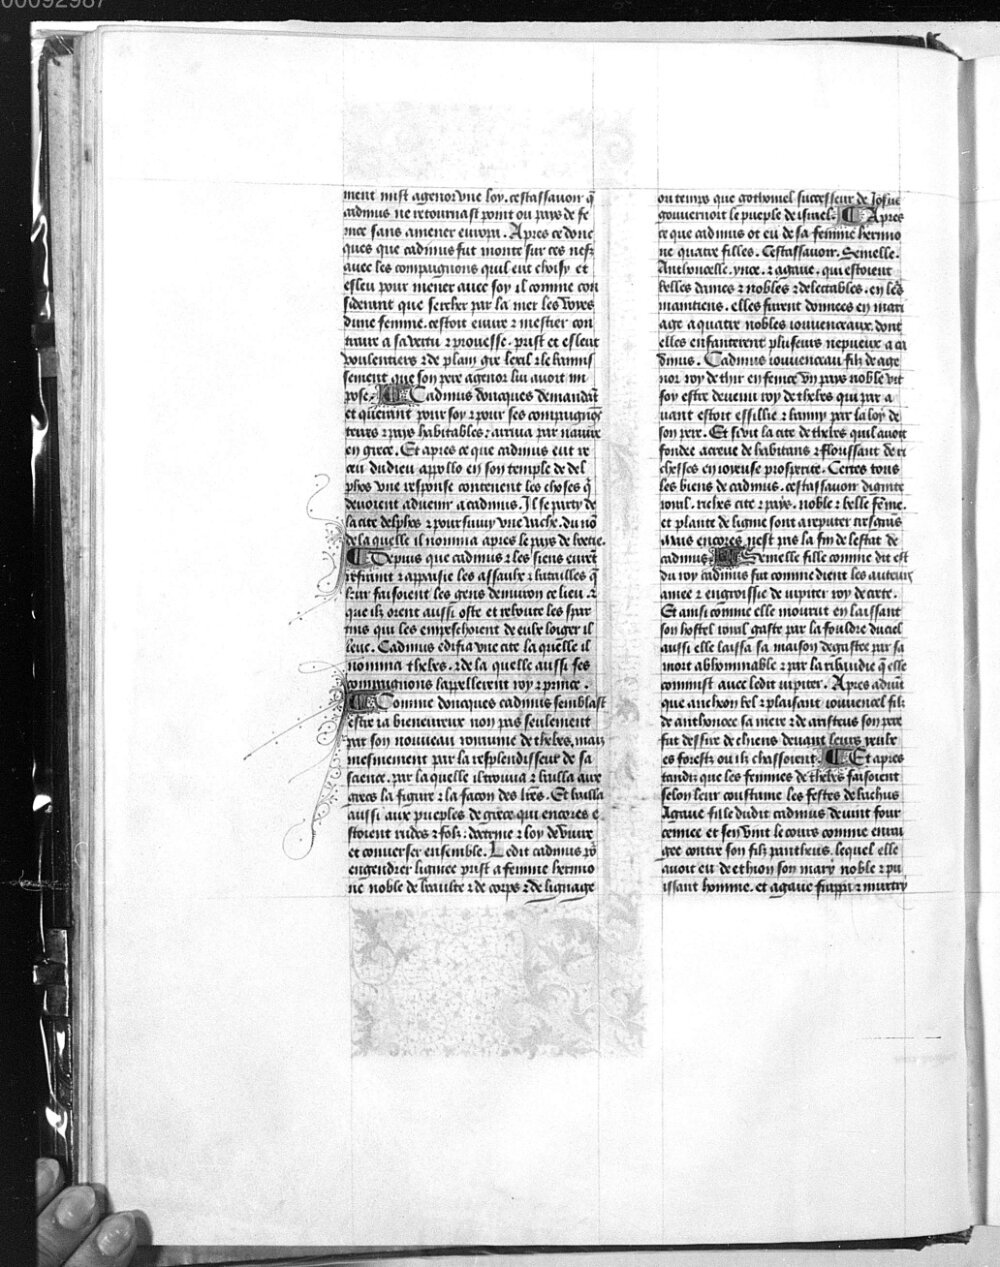 00092987
ment mist agenor vne loy. cestassauoir q̃
cadmus ne retournast point ou pays de fe
nice sans amener europa. Apres ce donc
ques que cadmus fut monte sur ces nefz
auec les compaignons quil eut choisy et
esleu pour mener auec soy il comme con
siderant que sercher par la mer les voyes
dune femme. cestoit euure ⁊ mestier con
traire a sa vertu ⁊ prouesse. prist et esleut
voulentiers ⁊ de plain gre lexil ⁊ le bannis
sement que son pere agenor lui auoit im
pose. Cadmus doncques demandãt
et querant pour soy ⁊ pour ses compaignõs
terres ⁊ pays habitables: arriua par nauire
en grece. Et apres ce que cadmus eut re
ceu du dieu apollo en son temple de del
phos vne response contenent les choses q̃
deuoient aduenir a cadmus. Il se party de
la cite delphos ⁊ poursuiuy vne vache. du nõ
de la quelle il nomma apres le pays de boetie.
Depuis que cadmus ⁊ les siens eurẽt
refraint ⁊ appaisie les assaulx ⁊ batailles q̃
leur faisoient les gens denuiron ce lieu. ⁊
que ilz orent aussi oste et reboute les spar
tins qui les empeschoient de eulx loigier il
leuc. Cadmus edifia vne cite la quelle il
nomma thebes. ⁊ de la quelle aussi ses
compaignons lappellerent roy ⁊ prince.
Comme doncques cadmus semblast
estre ia bieneureux non pas seulement
par son nouueau royaume de thebes. mais
mesmement par la resplendisseur de sa
science. par la quelle il trouua ⁊ bailla aux
grecs la figure ⁊ la facon des lr̃es. Et bailla
aussi aux pueples de grece qui encores e
stoient rudes ⁊ folz: doctrine ⁊ loy de viure
et conuerser ensemble. Ledit cadmus põ
engendrer lignee prist a femme hermio
ne noble de beaulte ⁊ de corps ⁊ de lignage
ou temps que gothoniel successeur de Josue
gouuernoit le pueple de israel. Apres
ce que cadmus ot eu de sa femme hermio
ne quatre filles. Cestassauoir. Semelle.
Anthonoelle. ynoe. ⁊ agaue. qui estoient
belles dames ⁊ nobles ⁊ delectables. en les
maintiens. elles furent donnees en mari
age a quatre nobles iouuenceaux. dont
elles enfanterent plusieurs nepueux a ca
dmus. Cadmus iouuenceau filz de age
nor roy de thir en fenice vn pays noble vit
soy estre deuenu roy de thebes qui par a
uant estoit essillie ⁊ banny par la loy de
son pere. Et si vit la cite de thebes quil auoit
fondee acreue de habitans ⁊ floussant de ri
chesses en ioyeuse prosperite. Certes tous
les biens de cadmus. cestassauoir dignite
roial. riches cite ⁊ pays. noble ⁊ belle fẽme.
et plante de lignie sont a reputer
Mais encores nest pas la fin de lestat de
cadmus. Semelle fille comme dit est
du roy cadmus fut comme dient les auteurs
amee ⁊ engroissie de iupiter roy de crete.
Et ainsi comme elle mourut en laissant
son hostel roial gaste par la fouldre du ciel
aussi elle laissa sa maison degastee par sa
mort abhominable ⁊ par la ribaudie q̃ elle
commist auec ledit iupiter. Apres aduĩt
que ancheon bel ⁊ plaisant iouuencel filz
de anthonoee sa mere ⁊ de aristeus son pere
fut dessire de chiens deuant leurs yeulx
es forestz ou ilz chassoient. Et apres
tandiz que les femmes de thebes faisoient
selon leur coustume les festes de bachus
Agaue fille dudit cadmus deuint four
cenniee et sen vint le cours comme enrai
gee contre son filz pantheus. lequel elle
auoit eu de ethion son mary noble ⁊ pu
issant homme. et agaue frappa ⁊ murtry